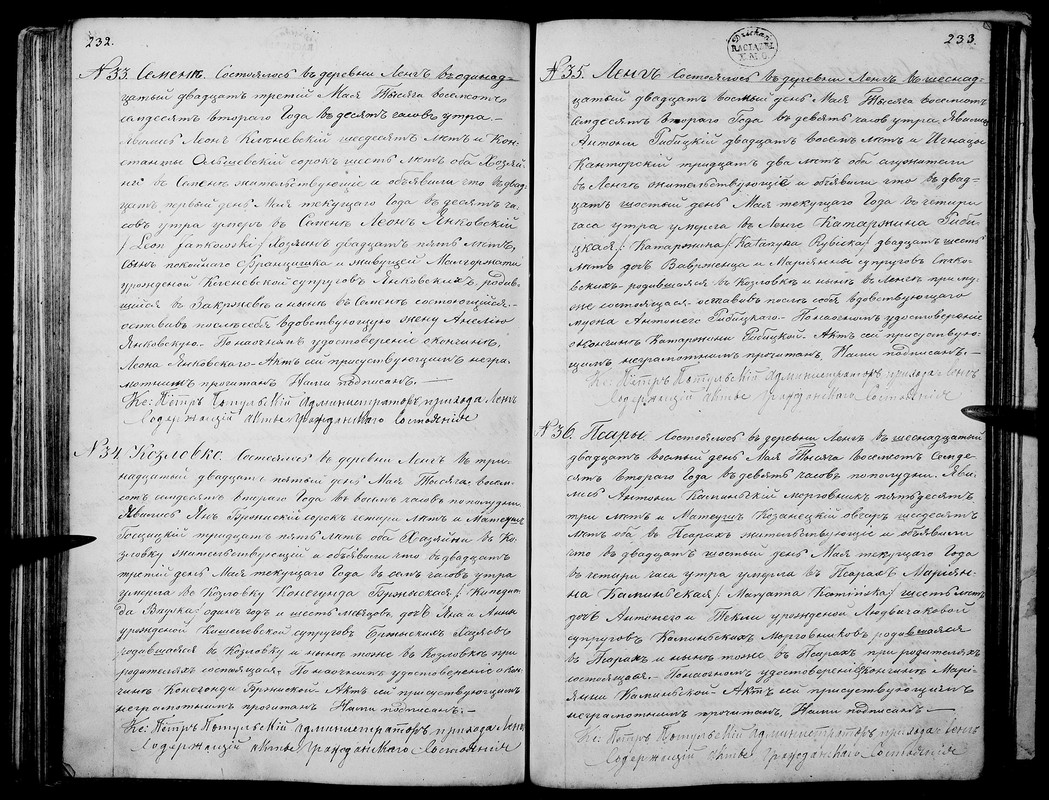 232.
№33. Семенъ. Состоялось въ деревни Ленгъ въ одинад=
цатый двадцать третій Мая Тысяча восемсотъ
семдесятъ втораго Года въ десять часовъ утра.—
Явились Леонъ шесдесятъ лѣтъ и Кон=
станты Ольшевскій сорокъ шесть лѣтъ оба Хозяй
ни въ Семенѣ жительствующіе и объявили что въ двад=
цать первый день Мая текущаго Года въ десять ча=
совъ утра умеръ въ Семенѣ Леонъ Янковскій
/Leon Jankowski/ Хозяинъ двадцать пять лѣтъ,
сынъ покойнаго Францишка и живущей Малгоржаты
урожденой супруговъ Янковскихъ, родив=
шійся въ Закржевѣ а нынѣ въ Семенѣ состоющійся.—
оставивъ послѣ себя вдовствующую жену Анелію
Янковскую.— По наочномъ удостовереніе окончинѣ
Леона Янковскаго. Актъ сей присутствующимъ негра=
мотнымъ прочитанъ Нами подписанъ.—
Кс: Пётръ Администраторъ прихода Ленгъ
Содержащій Акты Гражданскаго Состоянія
№34 Козловке. Состоялось въ деревни Ленгъ въ три=
надцатый двадцать пятый день Мая Тысяча восем=
сотъ семдесятъ втораго Года въ восемъ часовъ пополудни.
Явились Янъ сорокъ четири лѣтъ и Матеушъ
Госцицкій тридцать пять лѣтъ оба Хозяйни въ Ко=
зловку жительствующій а объявили что въ двадцать
третій день Мая текущаго Года въ семъ часовъ утра
умерла въ Козловку Конегунда /Кинегун=
да одинъ годъ и шесть мѣсяцовъ дочь Яна и Анны
урожденой супруговъ Хозяевъ
родившаяся въ Козловку и нынѣ тоже въ Козловкѣ при
родителяхъ состоящая. По наочномъ удостовереніе окон=
чинѣ Конегонди Актъ сей присутствующимъ
неграмотнымъ прочитанъ Нами подписанъ.—
Кс: Пётръ Администраторъ прихода Ленгъ
Содержащій Акты Гражданскаго Состоянія
233
RACIĄŻEK
№35. Ленгъ Состоялось въ деревни Ленгъ въ шеснад=
цатый двадцать восмый день Мая Тысяча восемсотъ
семдесятъ втораго Года въ девять часовъ утра. Явились
Антони Рибицкій двадцать восемъ лѣтъ и Игнацы
Канторскій тридцать два лѣтъ оба
въ Ленгѣ жительствующіе и объявили что въ двад=
цать шостый день Мая текущаго Года въ четири
часа утра умерла въ Ленге Катаржина Риби
цкая /Катаржина/Katarzyna Rybicka/ двадцать шесть
лѣтъ дочь Вавржинца и Маріянны супруговъ
вскихъ родившаяся въ Козловкѣ и нынѣ въ Ленгѣ при му=
же состоящая.— оставивъ послѣ себя вдовствующаго
мужа Антонего Рибицкаго.— По наочномъ удостовереніе
окончинѣ Катаржини Рибицкой. Актъ сей присутствую=
щимъ неграмотнымъ прочитанъ, Нами подписанъ.—
Кс: Пётръ Администраторъ прихода Ленгъ
Содержащій Акты Гражданскаго Состоянія
№36. Псары. Состоялось въ деревни Ленгъ въ шеснадцатый
двадцать восмый день Мая Тысяча восемсотъ Семде=
сятъ втораго Года въ девять часовъ пополудни. Яви=
лись Антони Каминьскій морговникъ пятьдесятъ
три лѣтъ и Матеушъ Козанецкій овсаръ шесдесятъ
лѣтъ оба въ Псарахъ жительствующіе и объявили
что въ двадцать шостый день Мая текущаго Года
въ четири часа утра умерла въ Псарахъ Маріян=
на Каминьская /Maryanna Kamińska/ шесть лѣтъ
дочь Антонего и Текли урожденой Людвичаковой
супруговъ Каминьскихъ Морговниковъ родившаяся
въ Псарахъ и нынѣ тоже въ Псарахъ при родителяхъ
состоящая.— По наочномъ удостовереніе окончинѣ Марі=
янни Каминьской.— Актъ сей присутствующимъ
неграмотнымъ прочитанъ, Нами подписанъ.—
Кс: Пётръ Администраторъ прихода Ленгъ
Содержащій Акты Гражданскаго Состоянія